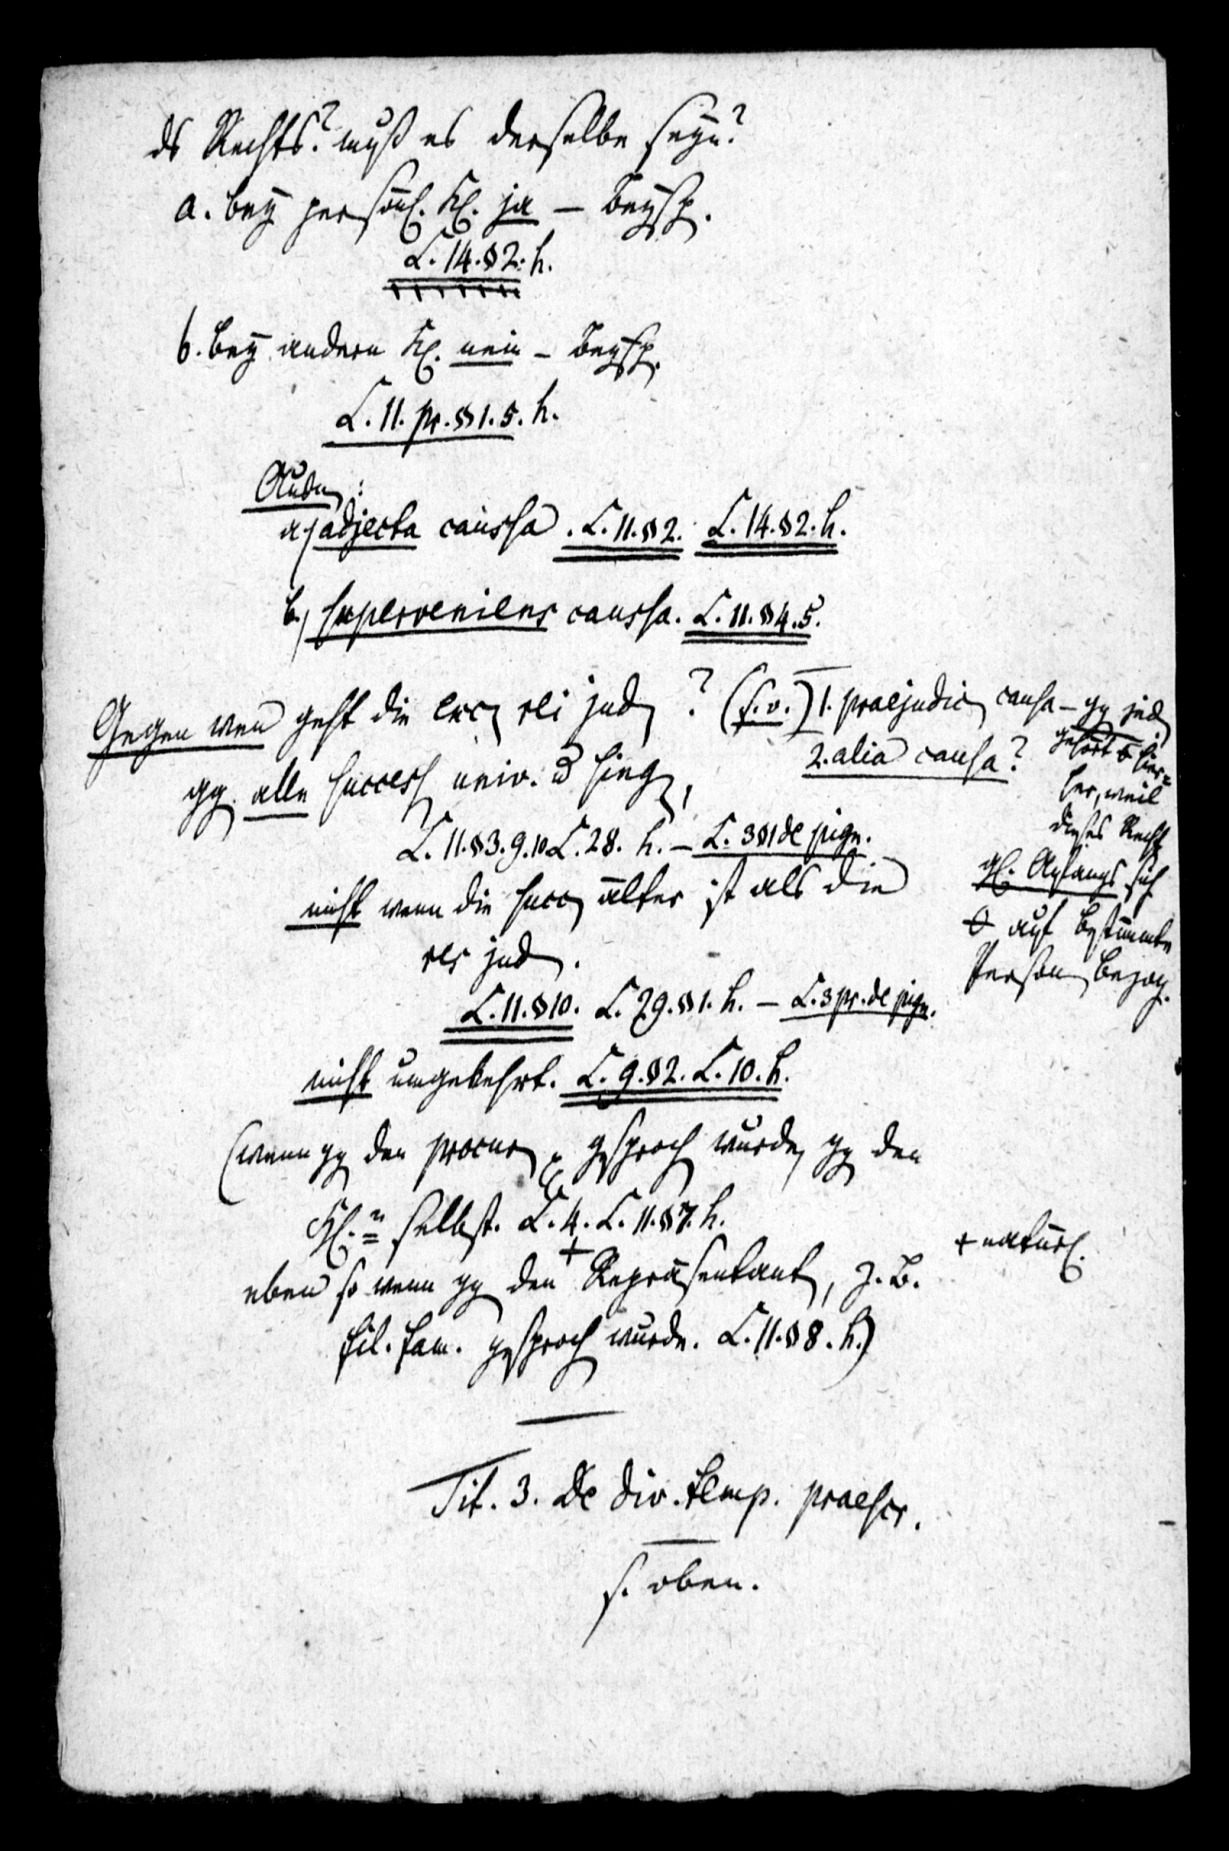 ds Rechts? muß es derselbe seyn?
a. bey persönl. Kl. ja – Beysp.
L. 14. § 2. h.
b. bey andern Kl. nein – Beysp.
L. 11. pr. § 1. 5. h.
a) adjecta caussa. L. 11. § 2. L. 14. § 2. h.
b) superveniens caussa. L. 11. § 4. 5.
Gegen wen geht die exc rei jud ? (s. o.) 1. praejudic causa – gg jed
2. alia causa?
gg. alle success univ. u sing,
L. 11. § 3. 9. 10 L. 28. h. – L. 3 § 1 de pign.
nicht wenn die succ älter ist als die
res jud.
L. 11. § 10. L. 29. § 1. h. – L. 3 pr. de pign.
nicht umgekehrt. L. 9. § 2. L. 10. h.
(wenn gg den procur gesproch wurde, gg den
Kl. selbst. L. 4. L. 11. § 7. h.
eben so wenn gg den + Repräsentant, z. B.
fil. fam. gesproch wurde. L. 11. § 8. h.)
gehört hier=
her, weil
dieses Recht
gl. Anfangs sich
auf bestimmte
Person bezog.
+ natürl.
Tit. 3. De div. temp. praescr.
s. oben.